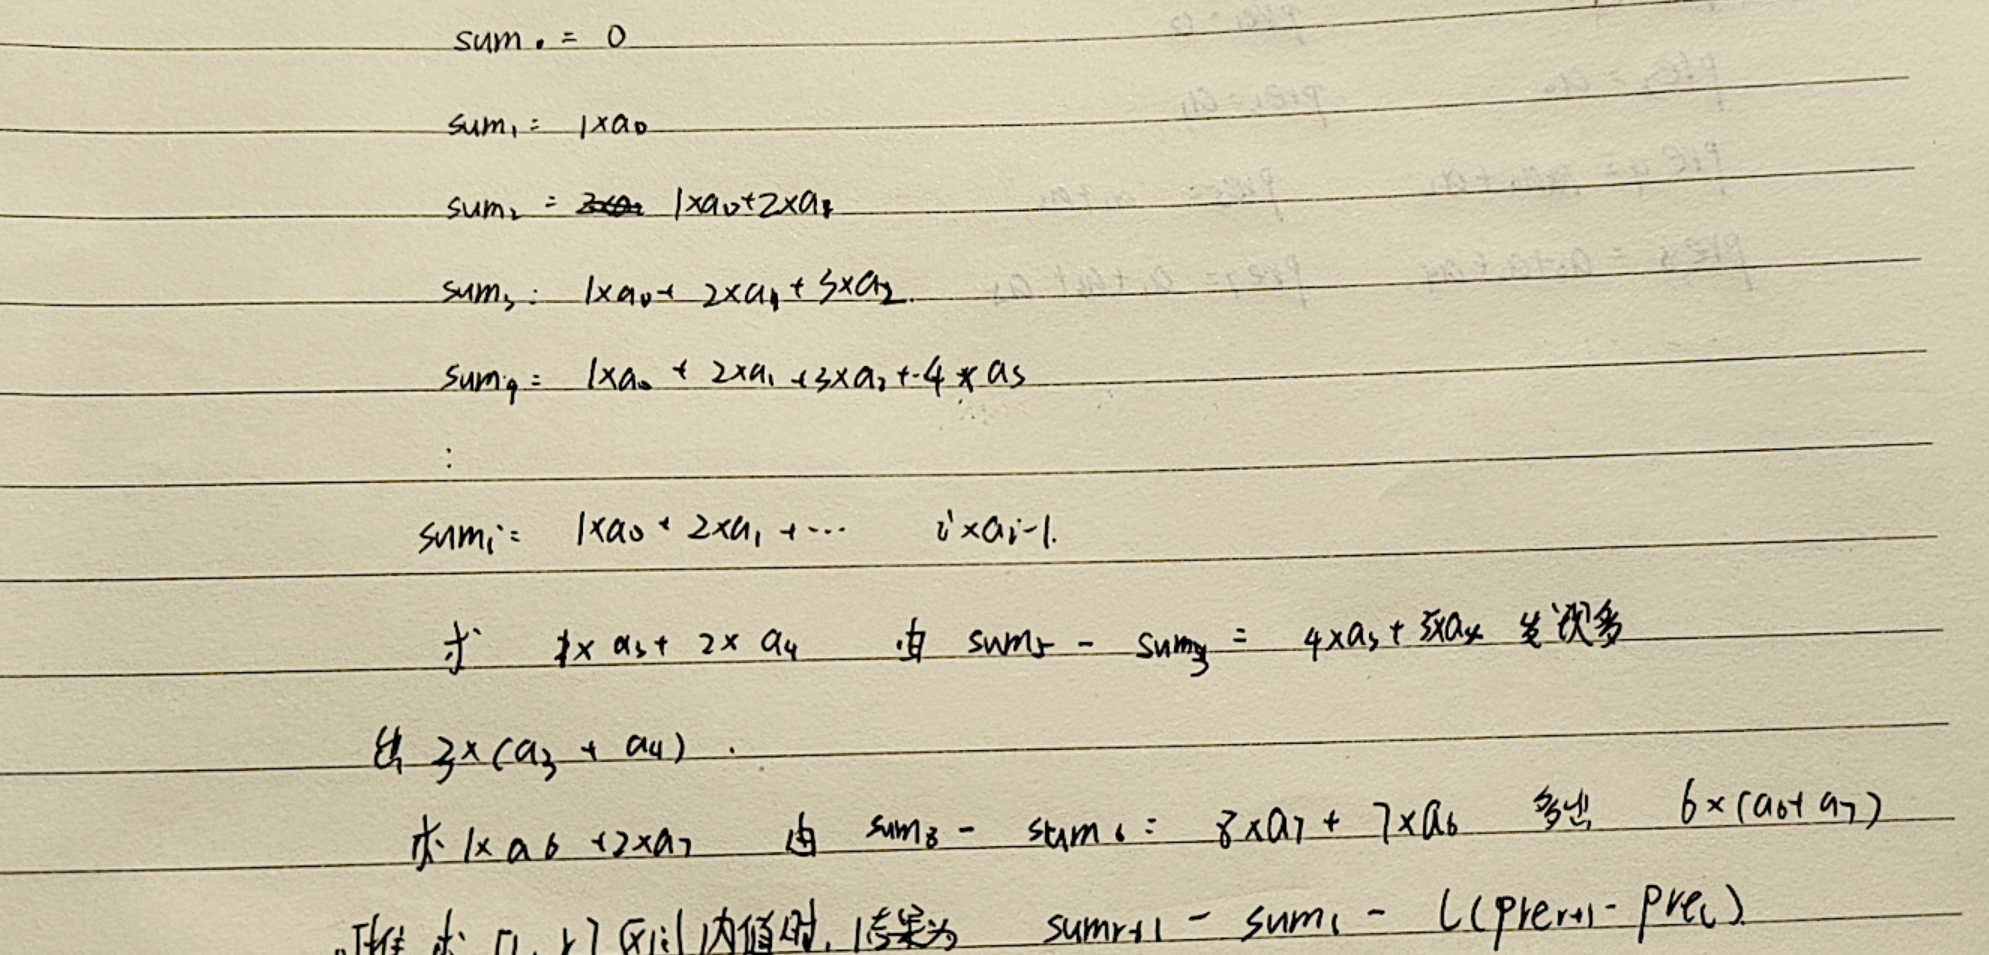 sum₀ = 0
sum₁ = 1×a₀
sum₂ = 1×a₀+2×a₁
sum₃ = 1×a₀+ 2×a₁+3×a₂.
sum₄ = 1×a₀ + 2×a₁ +3×a₂+4×a₃
⋮
sumᵢ= 1×a₀ + 2×a₁ +⋯ i×aᵢ₋₁.
求 1×a₃+ 2×a₄ 由 sum₅ - sum₃ = 4×a₃+5×a₄ 发现多
出 3×(a₃ + a₄).
求 1×a₆+2×a₇ 由 sum₈ - sum₆= 8×a₇ + 7×a₆ 多出 6×(a₆+a₇)
求 [l, r] 区间内值时, 结果为 sumᵣ₊₁ - sumₗ - l(preᵣ₊₁ - preₗ)